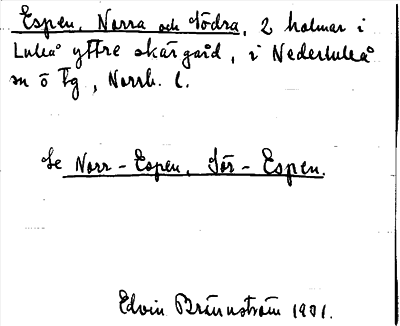 Espen, Norra och Södra, 2 holmar i
Luleå yttre skärgård, i Nederluleå
sn o tg, Norrb. l.
Se Norr-Espen, Sör-Espen.
Edvin Brännström 1981.